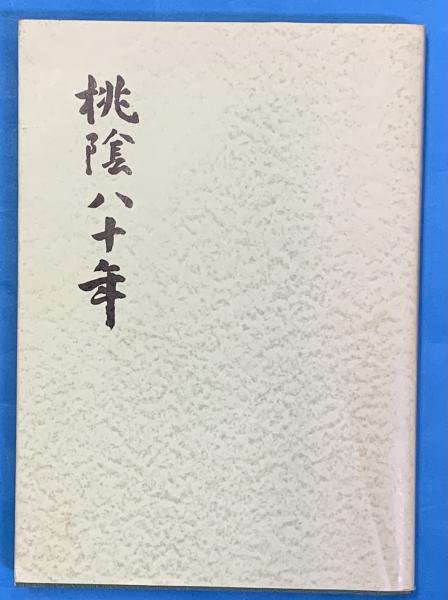 桃陰八十年